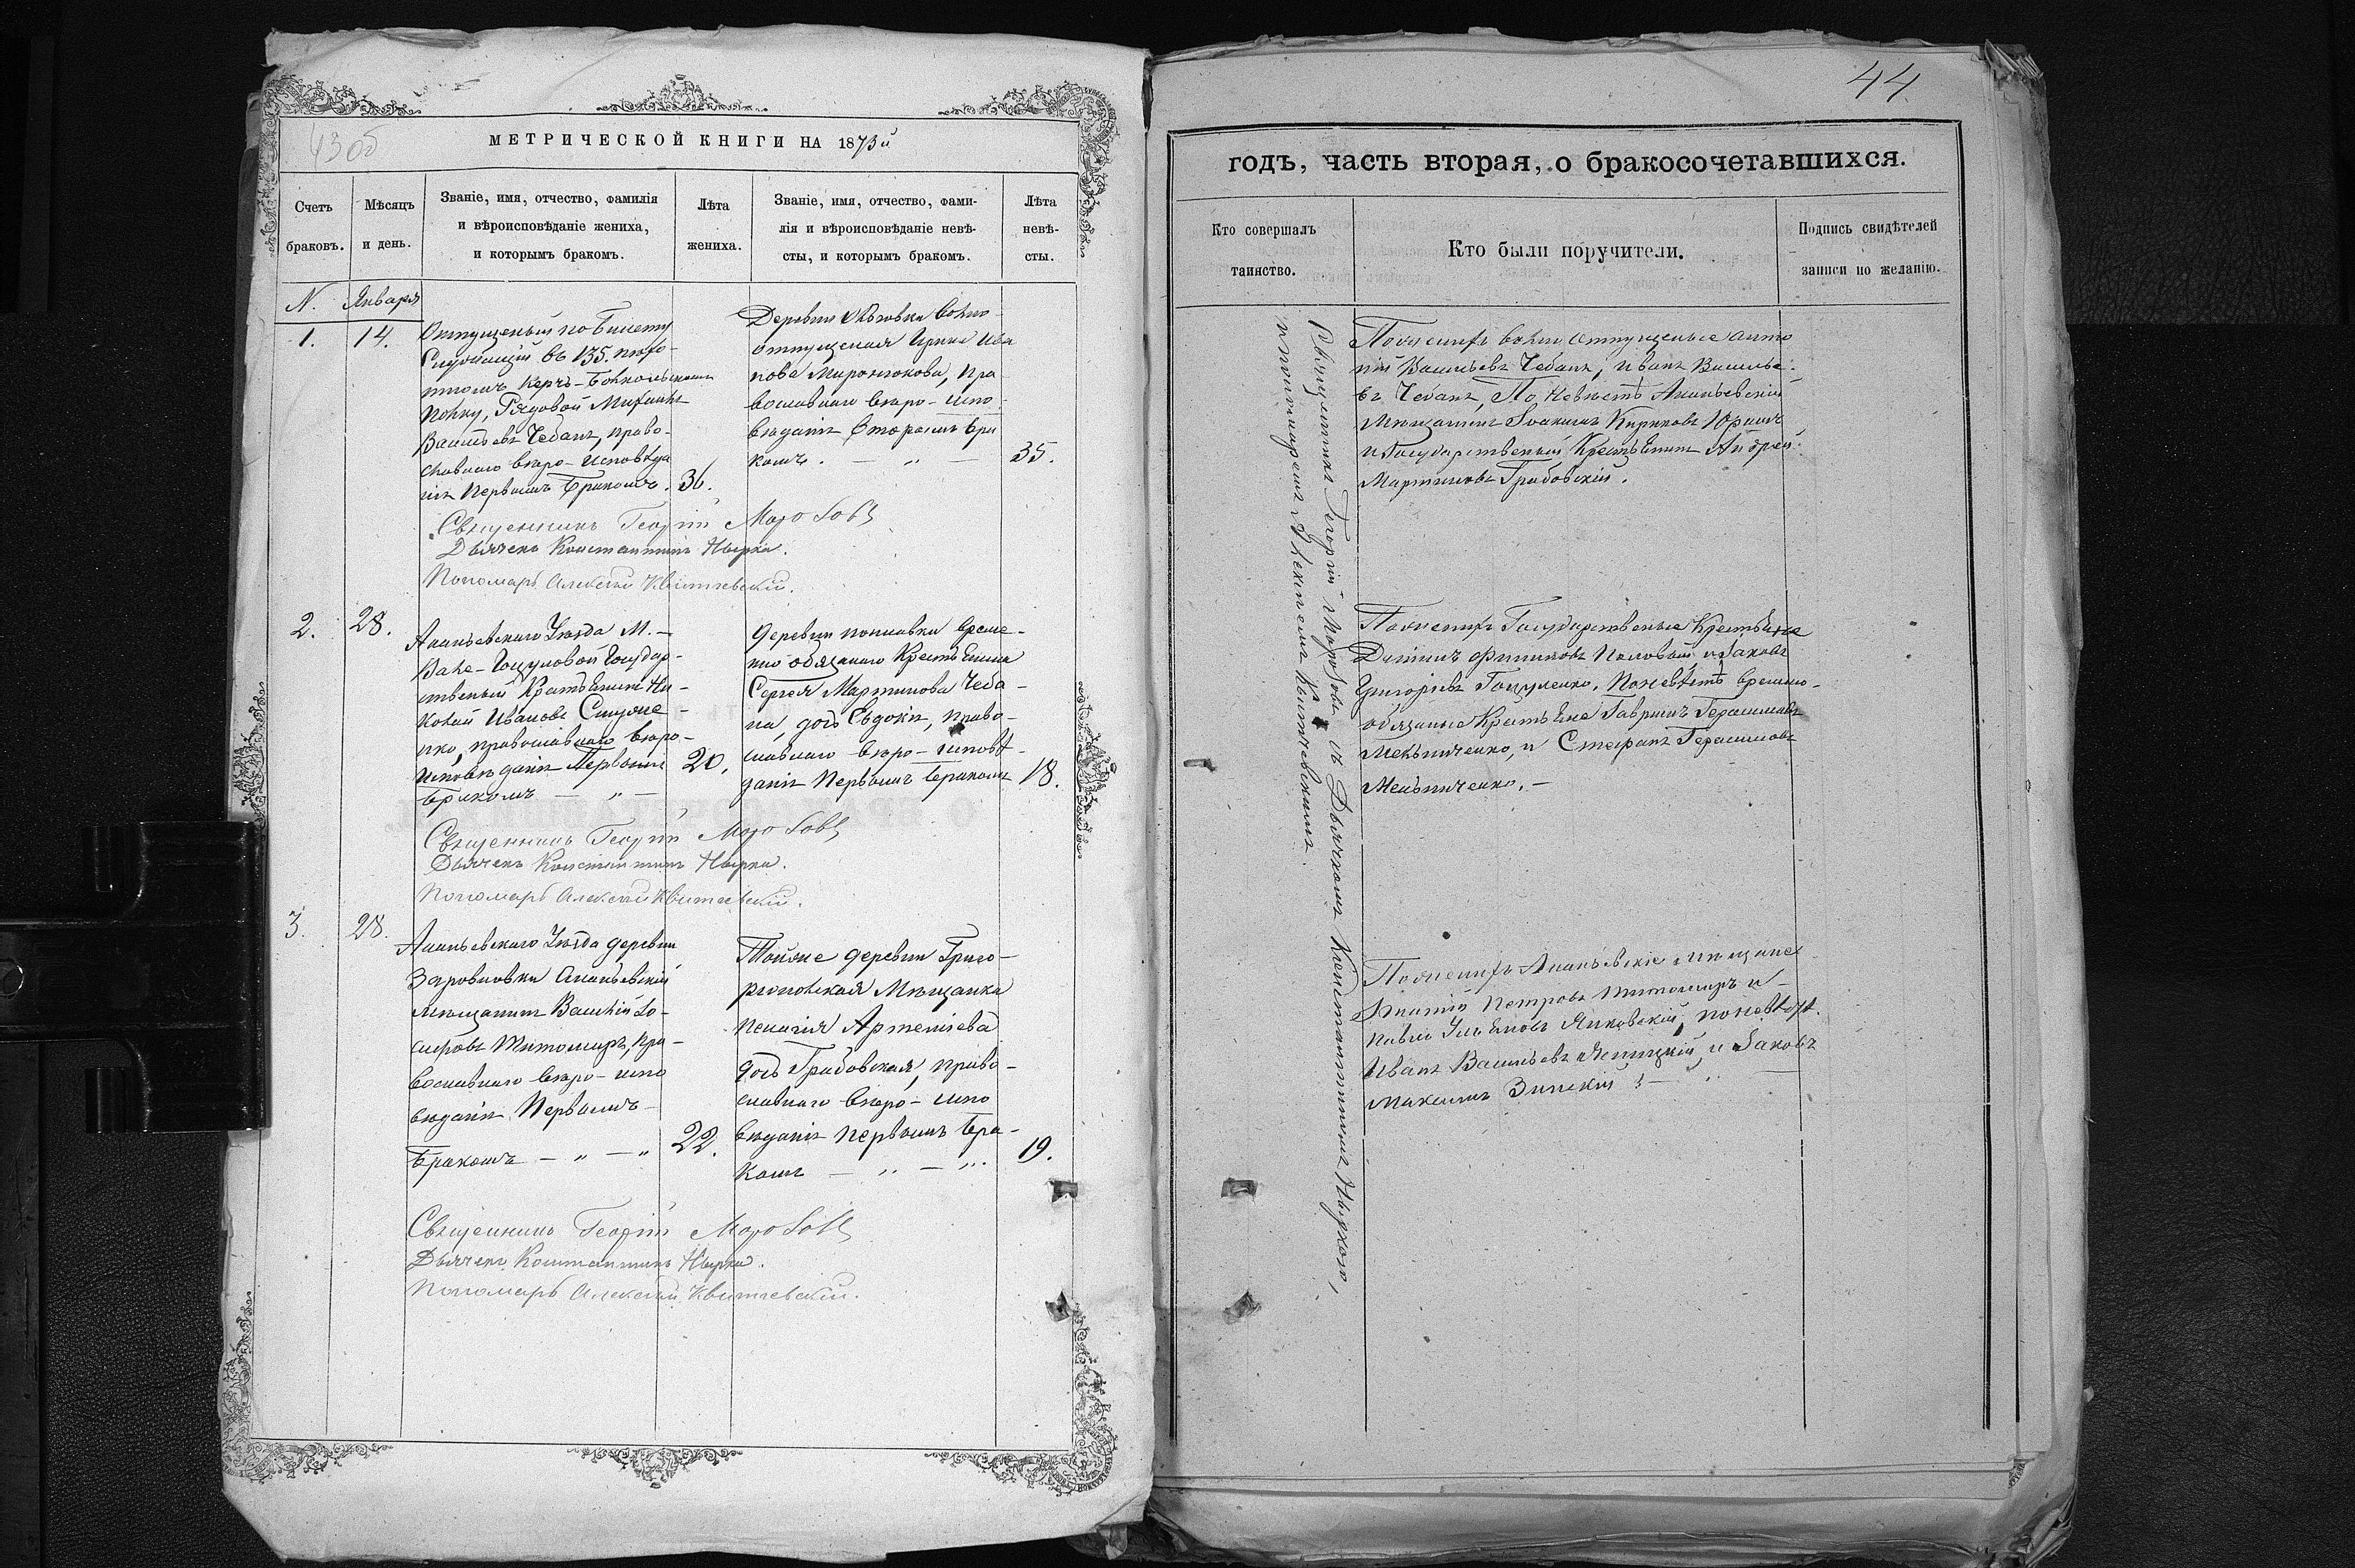 43об
МЕТРИЧЕСКОЙ КНИГИ НА 1873й
Счетъ браковъ.
Мѣсяцъ и день.
Званіе, имя, отчество, фамилія
и вѣроисповѣданіе жениха,
и которымъ бракомъ.
Лѣта
жениха.
Званіе, имя, отчество, фами-
лія и вѣроисповѣданіе невѣ-
сты, и которымъ бракомъ.
Лѣта
невѣ-
сты.
N. Января
1. 14.
Отпущеный по билету
Служащій въ 135. пехо-
тномъ Керчь-
полку, Рядовой Михаилъ
Васильевъ Чебанъ, право-
славнаго вѣро-исповѣда
нія первымъ бракомъ. 36.
Деревни волно
отпущеная Ирина Ива
нова Миронюкова, пра
вославнаго вѣро-испо
вѣданія вторымъ бра
комъ. — „ — 35.
Священникъ Георгій
Дьячекъ Константинъ Нырка.
Пономарь Алексѣй Квитчевскій.
2. 28.
Ананьевскаго Уѣзда М. —
Вале-Гоцуловой Государ-
ственый Крестьянинъ Ни-
колай Ивановъ
нко, православнаго вѣро-
исповѣданія первымъ 20.
бракомъ — „ —
деревни време-
нно обязаного Крестьянина
Сергея Мартинова Чеба-
на, дочь Евдокія, право-
славнаго вѣро-исповѣ-
данія первымъ бракомъ 18.
Священникъ Георгій
Дьячекъ Константинъ Нырка.
Пономарь Алексѣй Квитчевскій.
3. 28.
Ананьевскаго Уѣзда деревни
Ананьевскій
мѣщанинъ Василій Іо-
сифовъ Житомиръ, пра-
вославнаго вѣро-испо
вѣданія первымъ
бракомъ — „ — „ 22.
Тойже деревни Григо-
мѣщанка
Пелагія Артеміева
дочь Грабовская, право-
славнаго вѣро-испо
вѣданія первымъ бра-
комъ — „ — „ 19.
Священникъ Георгій
Дьячекъ Константинъ Нырка.
Пономарь Алексѣй Квитчевскій.
44.
годъ, часть вторая, о бракосочетавшихся.
Кто совершалъ
таинство.
Кто были поручители.
Подпись свидѣтелей
записи по желанію.
Священникъ Георгій съ Дьячкомъ Константиномъ Ныркою,
и пономаремъ Алексѣемъ Квитчевскимъ.
По женихѣ волно отпущеные Анто
ній Васильевъ Чебанъ, Иванъ Василье-
въ Чебанъ, По невѣстѣ Ананьевскій
Мѣщанинъ Іоакимъ Кириковъ
и Государственый Крестьянинъ Андрей
Мартиновъ Грабовскій.
По женихѣ Государственые Крестьяне
и Іаковъ
Григорьевъ Гоцуленко, По невѣстѣ временно-
обязаные Крестьяне Гавріилъ Герасимовъ
Мельниченко, и Стефанъ Герасимовъ
Мельниченко. —
По женихѣ Ананьевскіе мѣщане
Игнатій Петровъ Житомиръ и
Павелъ Янковскій, по невѣстѣ
Иванъ Васильевъ и Іаковъ
Максимъ